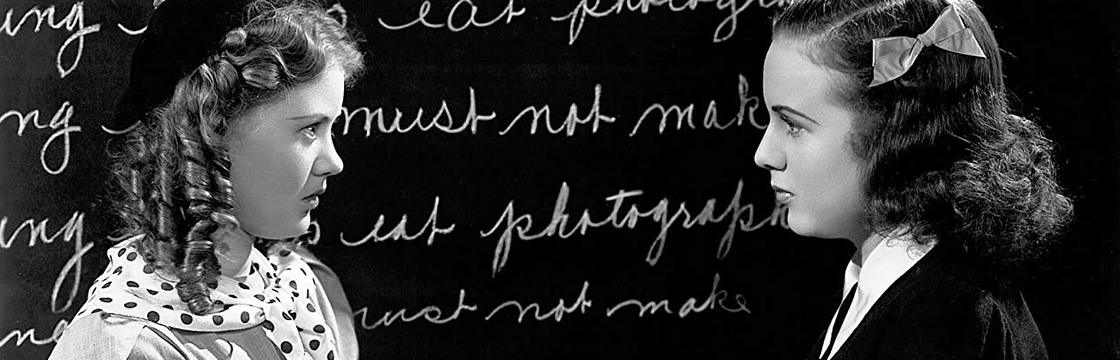 ung s eat photogr
ng must not mak
ung s eat photograph
ng must not make